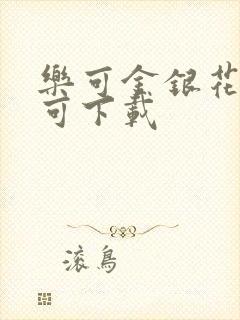 樂可金銀花
可下載
滾鳥